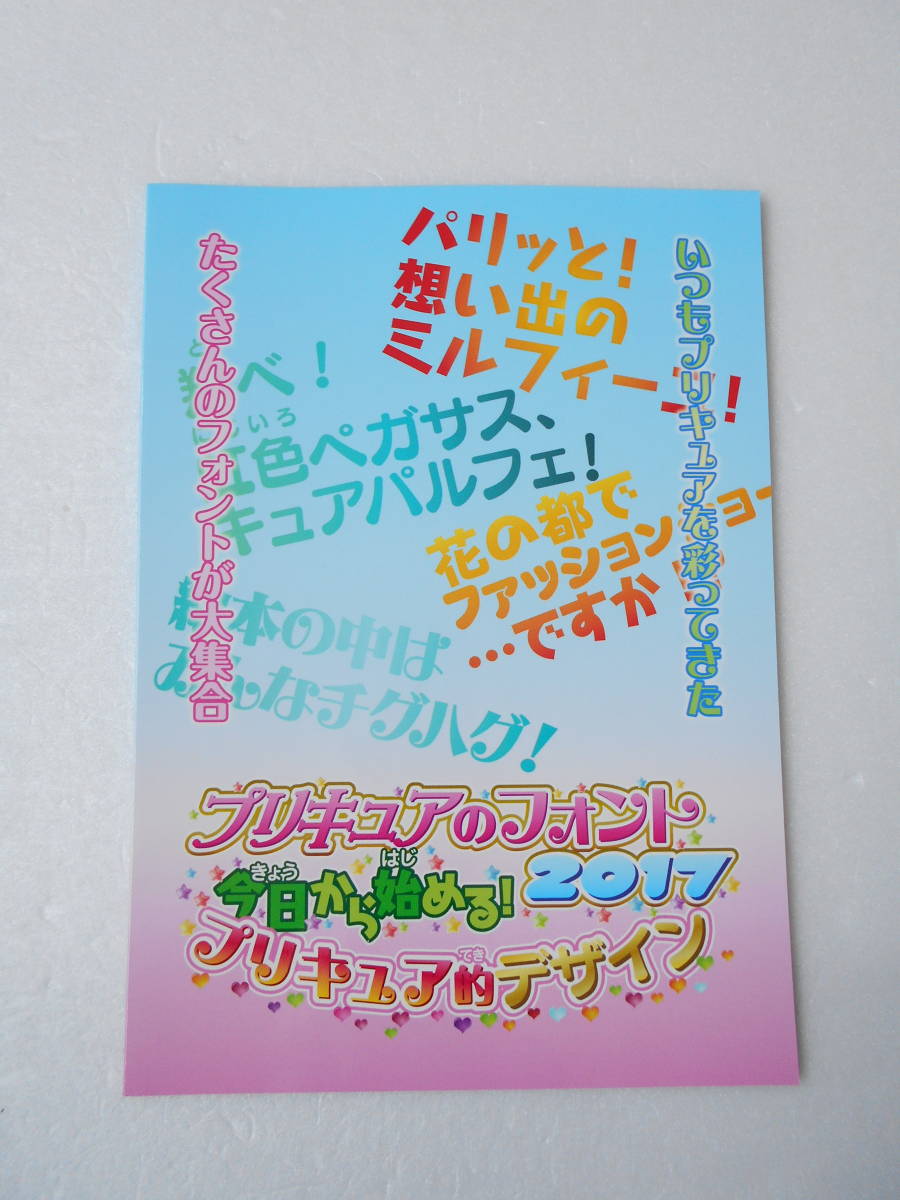 いつもプリキュアを彩ってきた
たくさんのフォントが大集合
パリッと！
想い出の
ミルフィーユ！
べ！
色ペガサス、
キュアパルフェ！
花の都で
ファッションショー
…ですか
絵本の中は
みんなチグハグ！
プリキュアのフォント
2017
今日から始める！
きょう
はじ
プリキュア的デザイン
てき